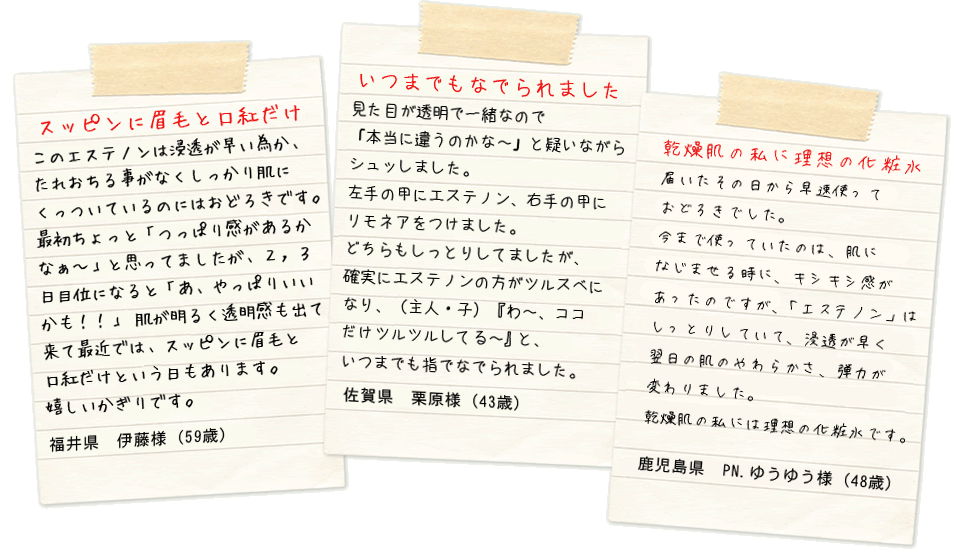 スッピンに眉毛と口紅だけ
このエステノンは浸透が早い為か、
たれおちる事がなくしっかり肌に
くっついているのにはおどろきです。
最初ちょっと「つっぱり感があるか
なぁ〜」と思ってましたが、2，3
日目位になると「あ、やっぱりいい
かも！！」肌が明るく透明感も出て
来て最近では、スッピンに眉毛と
口紅だけという日もあります。
嬉しいかぎりです。
福井県　伊藤様（59歳）
いつまでもなでられました
見た目が透明で一緒なので
「本当に違うのかな〜」と疑いながら
シュッしました。
左手の甲にエステノン、右手の甲に
リモネアをつけました。
どちらもしっとりしてましたが、
確実にエステノンの方がツルスベに
なり、（主人・子）『わ〜、ココ
だけツルツルしてる〜』と、
いつまでも指でなでられました。
佐賀県　栗原様（43歳）
乾燥肌の私に理想の化粧水
届いたその日から早速使って
おどろきでした。
今まで使っていたのは、肌に
なじませる時に、キシキシ感が
あったのですが、「エステノン」は
しっとりしていて、浸透が早く
翌日の肌のやわらかさ、弾力が
変わりました。
乾燥肌の私には理想の化粧水です。
鹿児島県　PN.ゆうゆう様（48歳）